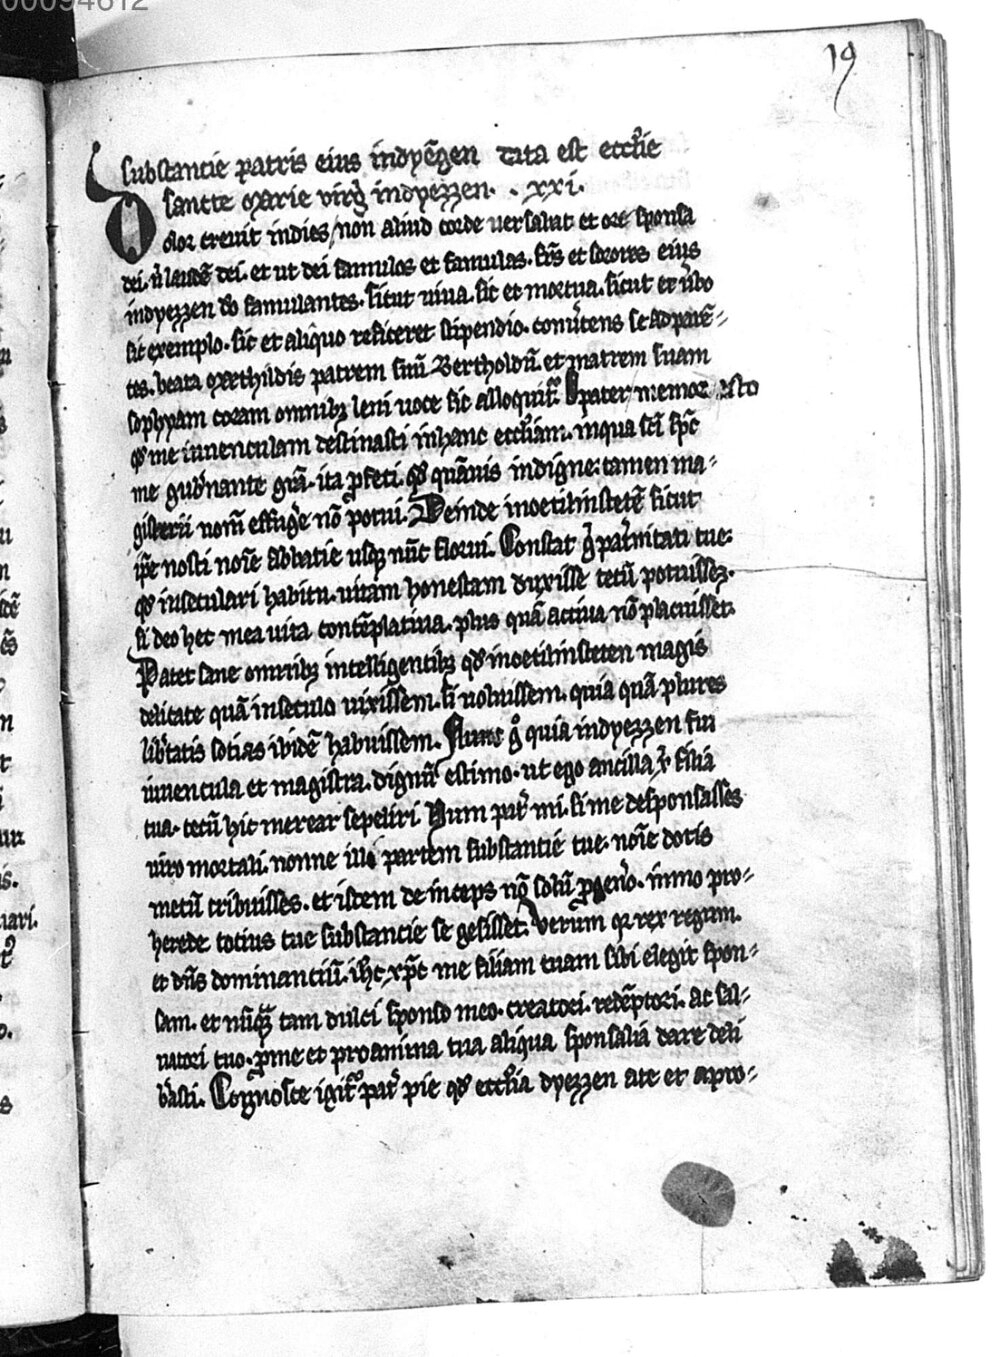 00094612
19
substantie patris eius indyēgen data est eccl̄ie
sancte marie virḡ indyezzen. xxi.
Dolor crevit indies / non aliud corde versabat et ore sponsa
dei. n̄ laudē dei. et ut dei famulos et famulas. fr̄s et sorores eius
indyezzen dō famulantes. sicut viva. sic et mortua. sicut et v̄bo
sic exemplo. sic et aliquo reficeret stipendio. conv̄tens se ad parē⸗
tes. beata mechthildis patrem suū Bertholdū. et matrem suam
sophyam coram omnibꝫ leni voce sic alloquit̄. O pater memor esto
qd̄ me iuvenculam destinasti in hanc eccl̄iam. in qua sc̄i sp̄c
me gub̄nante grā. ita ꝓfeci. qd̄ quāvis indigne: tamen ma⸗
gisterii nom̄ effuḡe nō potui. Deinde inoetilinstetē sicut
ip̄e nosti noīe abbatie usqꝫ nūc florui. Constat g̊ pat̄nitati tue:
qd̄ in seculari habitu. vitam honestam duxisse tecū potuissē.
si deo hec mea vita contēplativa. plus quā activa nō placuisset.
Patet sane omnibꝫ intelligentibꝫ qd̄ inoetilinsteten magis
delicate quā in seculo vixissem. si voluissem. quia quā plures
lib̄tatis socias ibidē habuissem. Nunc g̊ quia indyezzen fui
iuvencula et magistra. dignū estimo. ut ego ancilla χ̄ filia
tua. tecū hic merear sepeliri. Num pat̄ mi. si me desponsasses
viro mortali. nonne illi partem substantie tue. noīe dotis
mecū tribuisses. et isdem deinceps nō solū ꝓ gen̄o. immo pro⸗
herede totius tue substancie se gessisset. Verum qꝛ rex regum.
et dn̄s dominanciū. ih̄c xp̄c me filiam tuam sibi elegit spon⸗
sam. et nūqͣꝫ tam dulci sponso meo. creatori. redēptori. ac sal⸗
vatori tuo. ꝓ me et pro anima tua aliqua sponsalia dare deli
b̄asti. Cognosce igit̄ pat̄ pie qd̄ eccl̄ia dyezzen a te et a pro⸗